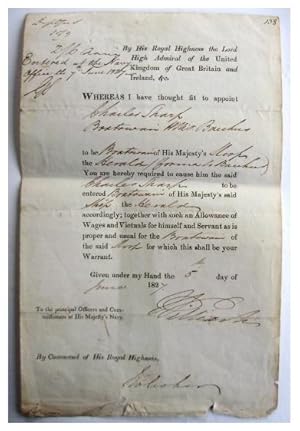 158
By His Royal Highness the Lord
High Admiral of the United
Kingdom of Great Britain and
Ireland, &c.
Entered at the Navy
Office the 7 June 1827
WHEREAS I have thought fit to appoint
Charles Sharp
Boatswain
to be Boatswain of His Majesty's Sloop
the
You are hereby required to cause him the said
Charles Sharp to be
entered Boatswain of His Majesty's said
Sloop the
accordingly; together with such an Allowance of
Wages and Victuals for himself and Servant as is
proper and usual for the Boatswain of
the said Sloop for which this shall be your
Warrant.
Given under my Hand the 5th day of
June 1827
William
To the principal Officers and Com-
missioners of His Majesty's Navy.
By Command of His Royal Highness,